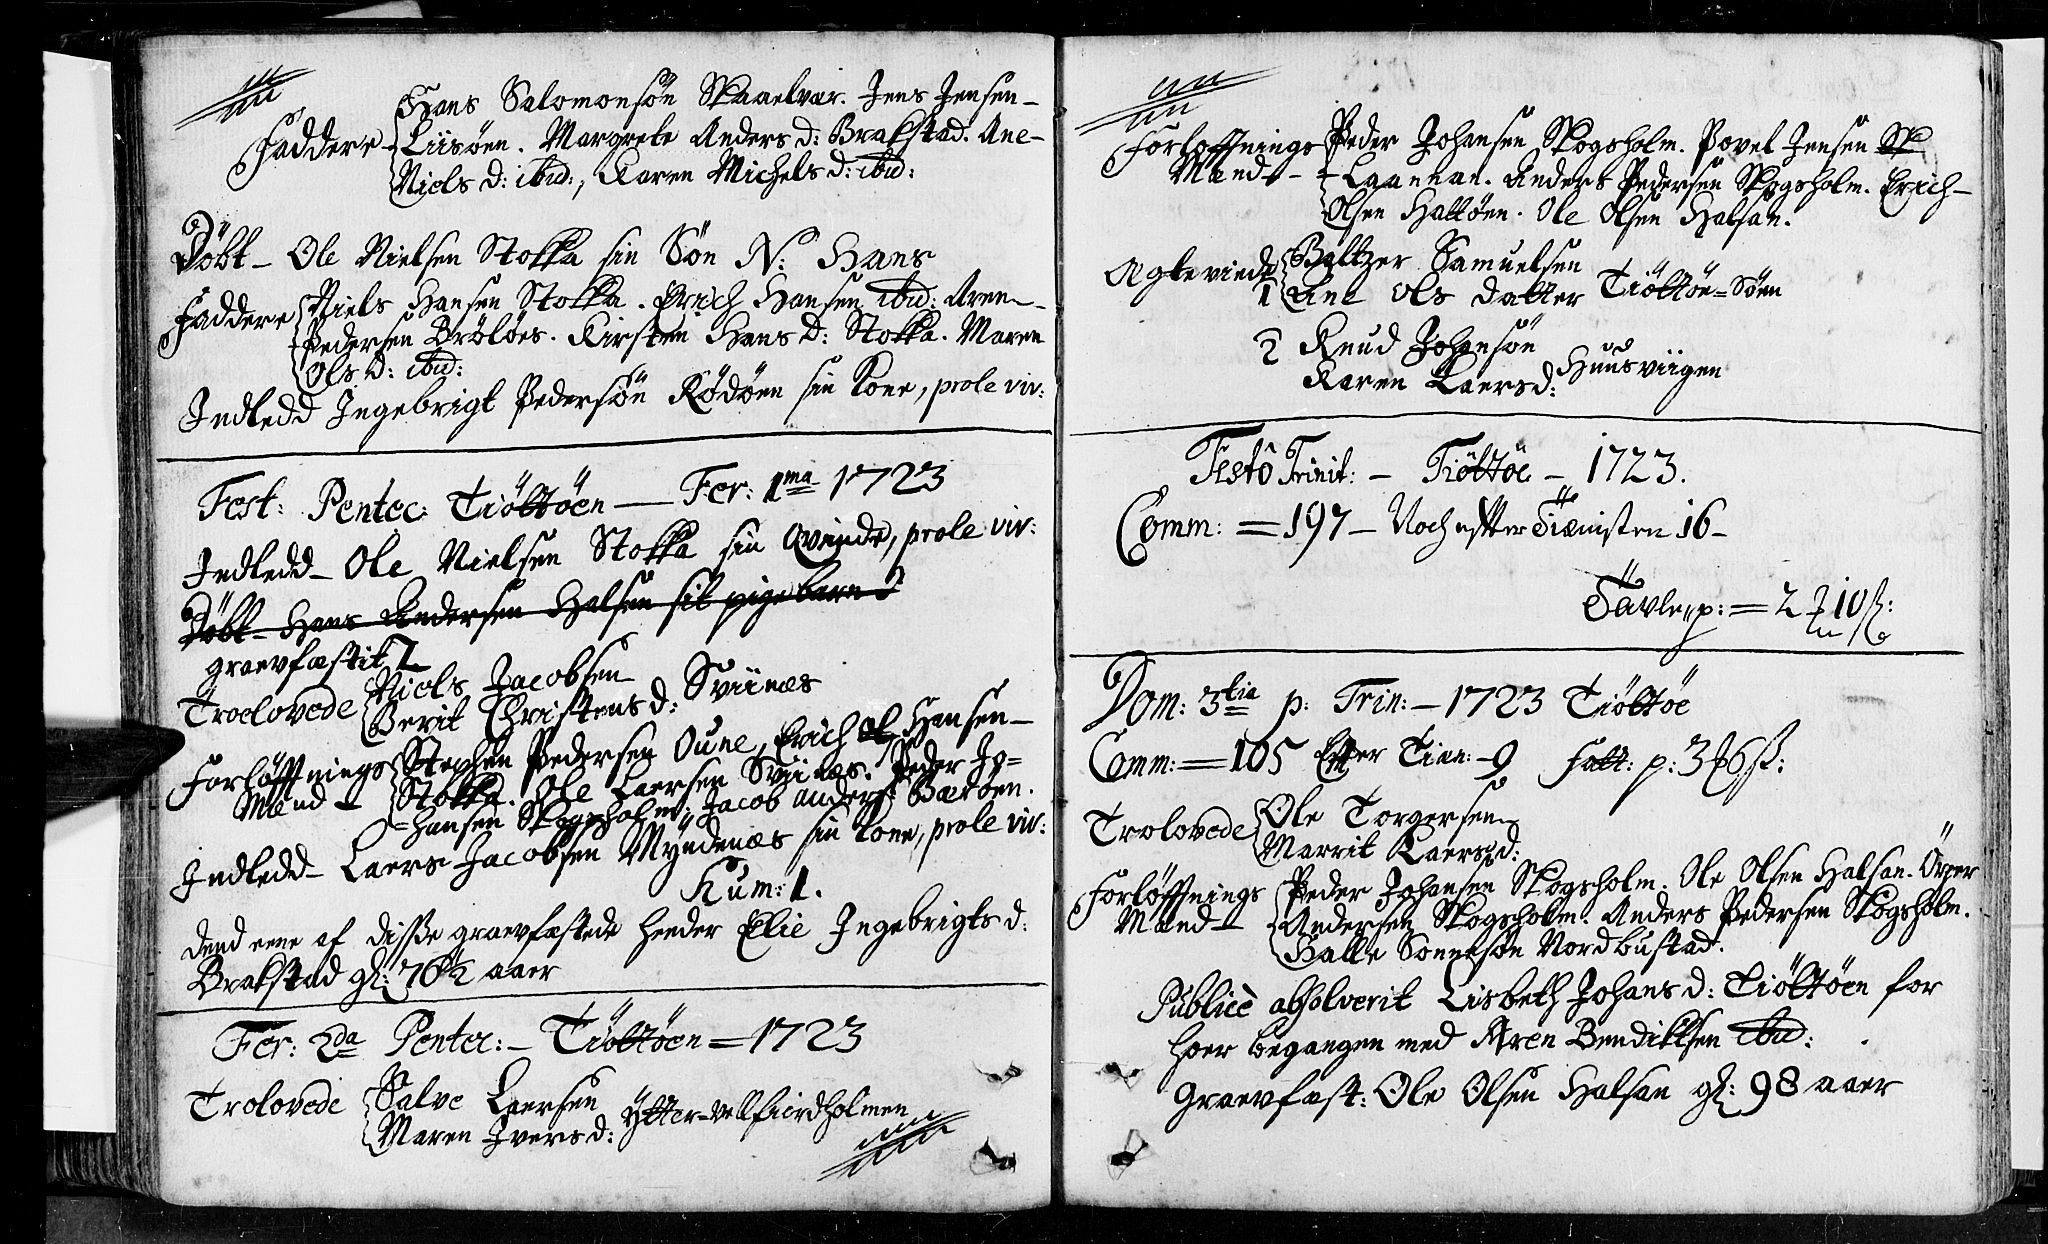 Hans Salomonsøn Skaaelvær. Jens Jensen-
Faddere- Liisøen. Margrete Anders d: Brakstad. Ane-
Niels d: ibid:, Karen Michels d: ibid:
Døbt - Ole Nielsen Stokka sin Søn N: Hans
Faddere Niels Hansen Stokka. Erich Hansen ibid: Aren-
Pedersen Brøløes. Kirsten Hans d: Stokka. Maren
Ols d: ibid:
Indledd Ingebrigt Pedersøn Rødøen sin Kone, prole viv:
Fest: Pentec: Tiøttøen — Fer: 1ma 1723
Indledd - Ole Nielsen Stokka sin Qvinde, prole viv:
Døbt - Hans Andersen Halsen sit pigebarn
graevfæstit 2
Troelovede Niels Jacobsen
Berit Christens d: Sviinæs
Forløffnings Stephen Pedersen Oune, Erich Ol Hansen-
Mænd - Stokka. Ole Laersen Sviinæs. Peder Jo=
=hansen Skogsholm. Jacob Anders Bærøen.
Indledd - Laers Jacobsen Myndenæs sin Kone, prole viv:
Hum: 1.
Dend eene af disse graevfæstede heeder Elie Ingebrigts d:
Brakstad gl: 76½ aaer
Fer: 2da Pentec: - Tiøttøen = 1723
Trolovede Salve Laersen
Maren Ivers d: Ytter=Velfierdholmen
Forløffnings Peder Johansen Skogsholm. Povel Jensen Sk
Mænd - - Laannan. Anders Pedersen Skogsholm. Erich-
Olsen Hattøen. Ole Olsen Halsan.
Ægteviede Baltzer Samuelsen
1 Ane Ols datter Tiøttøe=Søen
2 Knud Johansøn
Karen Laers d: Huusviigen
Festô Trinit: - Tiøttøe - 1723.
Comm: = 197 - Noch efter Tiænisten 16 -
Tavle p: = 2 10 ß:
Dom: 3tia p: Trin: - 1723 Tiøttøe
Comm: = 105 Efter Tien: - 9 Fatt: p: 3 6 ß:
Trolovede Ole Torgersen
Marrit Laers d:
Forløffnings Peder Johansen Skogsholm. Ole Olsen Halsan.
Mænd - Andersen Skogsholm. Anders Pedersen Skogsholm.
Halle Sonnesøn Nordbustad.
Publicè absolverit Lisbeth Johans d: Tiøttøen for
hoer begangen med Aren Bendiktsen ibid:
Graevfæst: Ole Olsen Halsan gl: 98 aaer